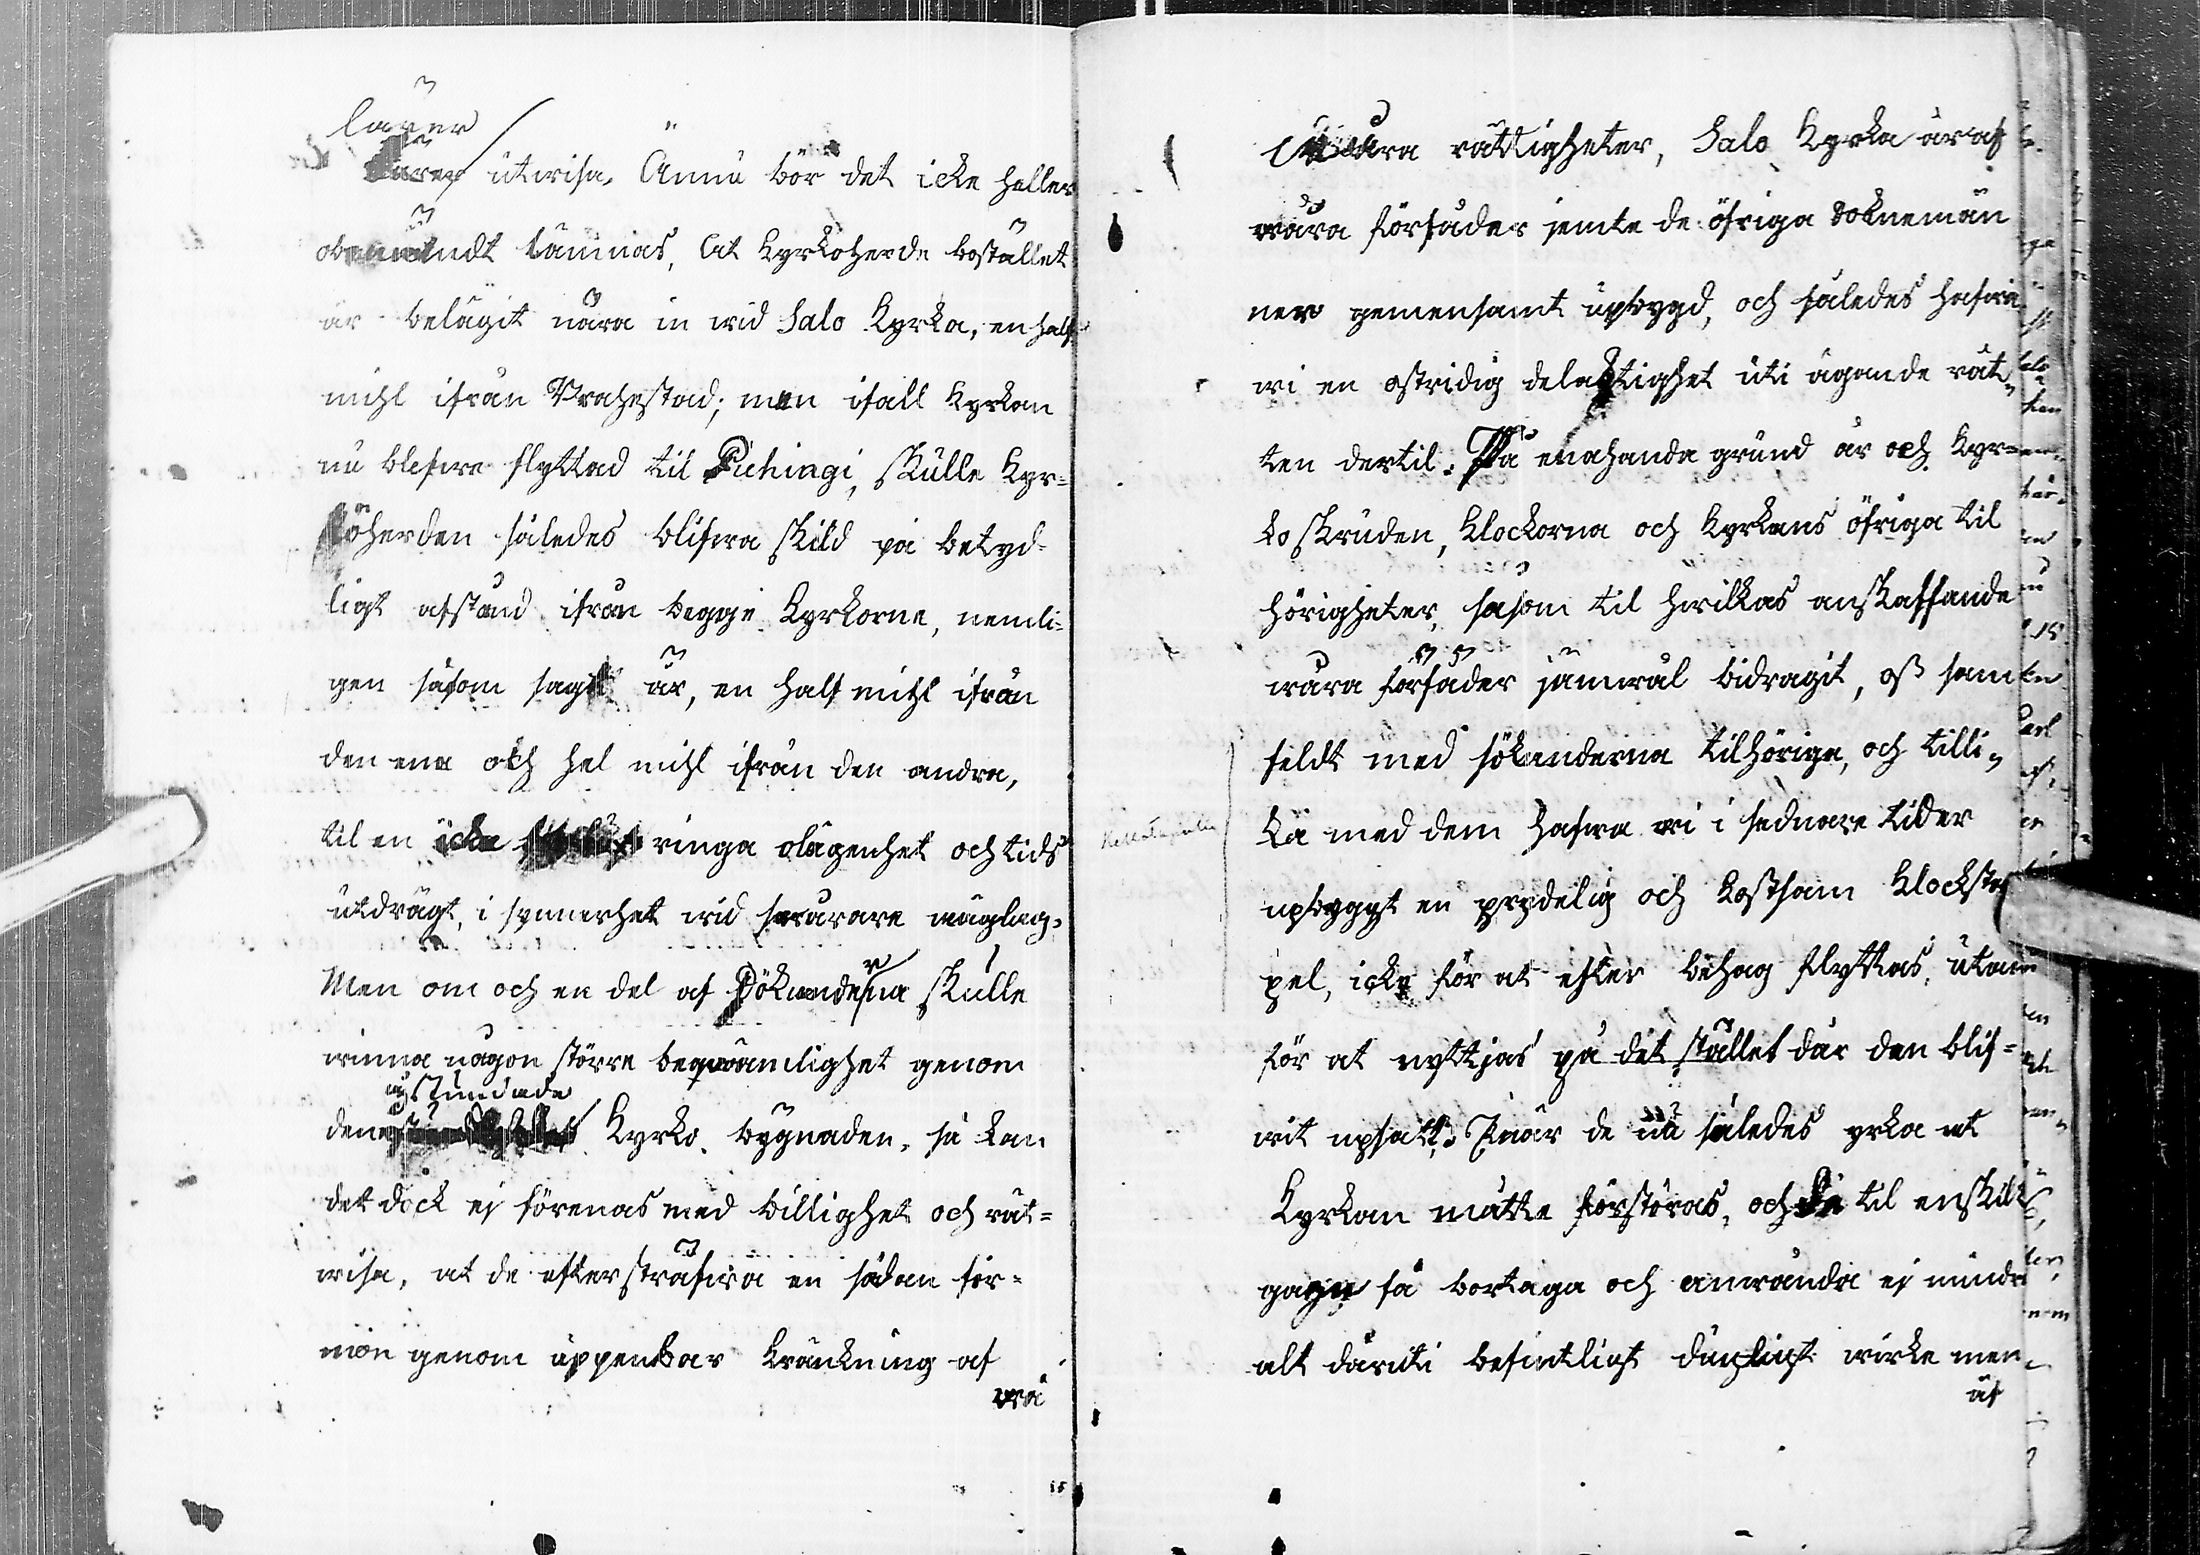 lärer
lärer utwisa. Ännu bör det icke heller
obenämndt lämnas, at Kyrkoherde bostället
är belägit nära in wid Salo Kyrka, en half
mihl ifrån Brahestad; men ifall Kyrkan
nu blefwe flyttad til Pichingi, skulle Kyr=
koherden således blifwa skild på betyd=
ligt afstånd ifrån begge Kyrkorne, nemli=
gen såsom sagt är, en half mihl ifrån
den ena och hel mihl ifrån den andra,
til en icke ringa olägenhet och tids
utdrägt, i synnerhet wid swårare wäglag.
Men om och en del af Sökanderna skulle
winna någon större beqwämlighet genom
åstundade
den Kyrko bygnaden, så kan
det dock ej förenas med billighet och rät=
wisa, at de eftersträfwa en sådan för=
mon genom uppenbar kränkning af
wå
wåra rättigheter, Salo Kyrka är af
wåra förfäder jemte de öfriga Soknemän
ner gemensamt upbygd, och således hafwa
wi en ostridig delaktighet uti ägande rät=
ten dertil. På enahanda grund är och Kyr=
ko skruden, Klockorna och Kyrkans öfriga til
hörigheter, såsom til hwilkas anskaffande
wåra förfäder jämwäl bidragit, oss sam
feldt med sökanderna tilhöriga, och tilli=
ka med dem hafwa wi i sednare tider
upbyggt en prydelig och kostsam Klocksta
pel, icke för at efter behag flyttas, utan
för at nyttjas på det stället där den blif=
wit upsatt. När de nu således yrka at
Kyrkan måtte förstöras, och de til enskildt
gagn få borttaga och använda ej mindre
alt däruti befinteligt dugligt wirke men
äf